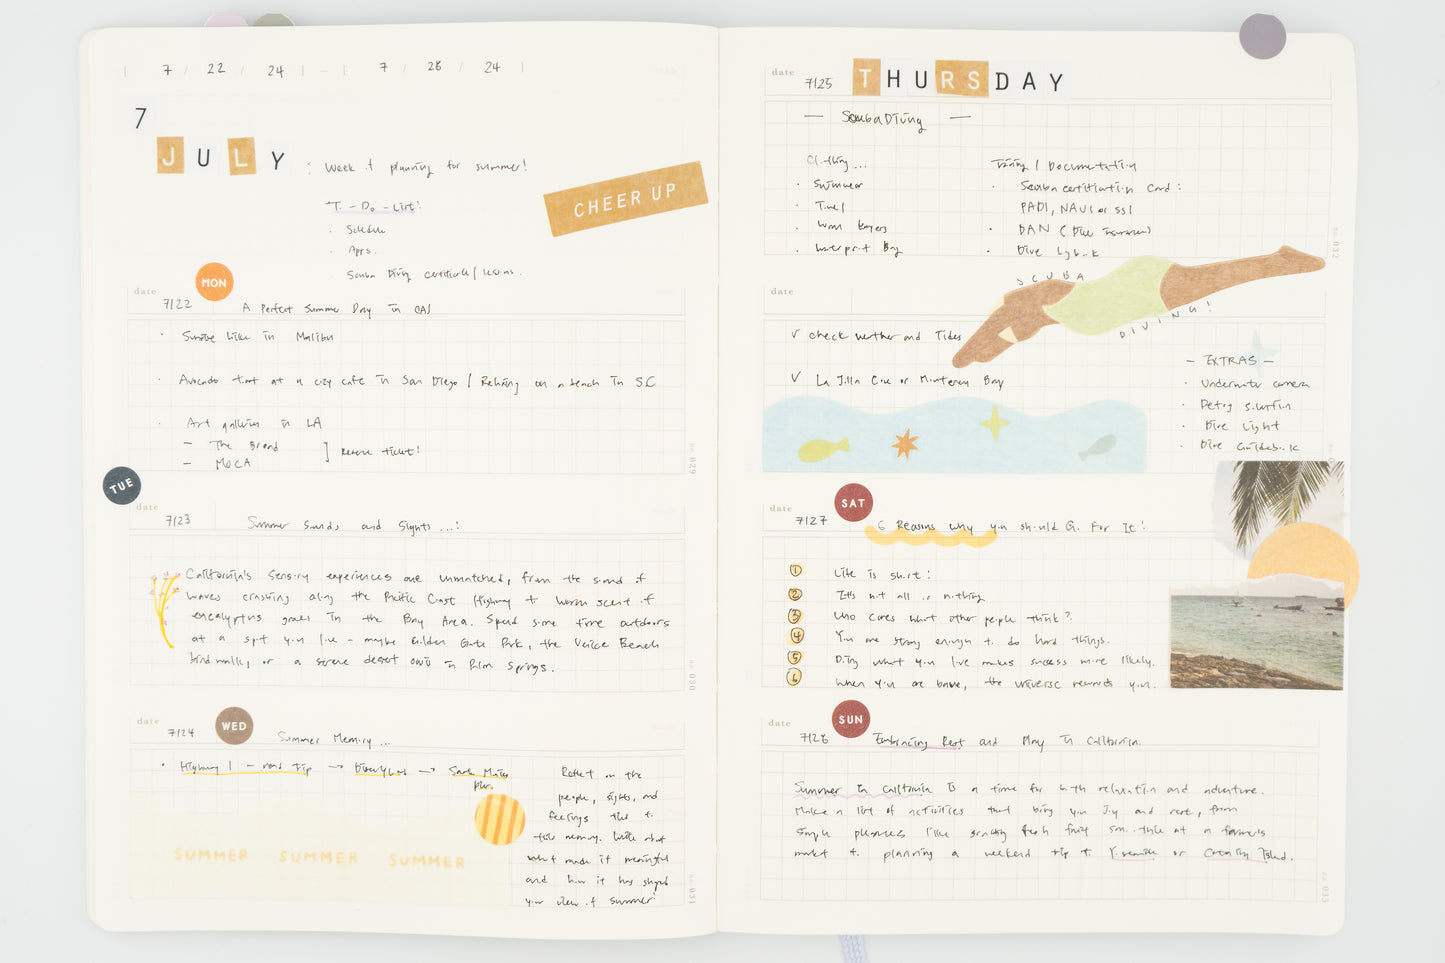 7 / 22 / 24 - 7 / 28 / 24
7
JULY : Week of planning for summer!
CHEER UP
To-Do-List:
· Schedule
· Apps.
· Scuba Diving certificate/lessons.
MON
date 7/22 A Perfect Summer Day in CA!
· Sunrise hike in Malibu
· Avocado toast at a cozy cafe in San Diego / Relaxing on a beach in SC
· Art galleries in LA
- The Broad
- MOCA
] Reserve ticket!
no. 029
TUE
date 7/23 Summer Sounds and Sights ...:
California's sensory experiences are unmatched, from the sound of
waves crashing along the Pacific Coast Highway to warm scent of
eucalyptus groves in the Bay Area. Spend some time outdoors
at a spot you love - maybe Golden Gate Park, the Venice Beach
boardwalk, or a serene desert oasis in Palm Springs.
no. 030
WED
date 7/24 Summer Memory ...
· Highway 1 - road trip → Disneyland → Santa Monica
pier.
SUMMER SUMMER SUMMER
Reflect on the
people, sights, and
feelings tied to
this memory. Write about
what made it meaningful
and how it has shaped
your view of summer
no. 031
date 7/25 THURSDAY
— Scuba Diving —
Clothing ...
· Swimwear
· Towel
· Warm layers
· Waterproof Bag
Training / Documentation
· Scuba certification Card:
PADI, NAUI or SSI
· DAN (Dive insurance)
· Dive Logbook
no. 032
SCUBA
DIVING!
date
✓ check weather and Tides
✓ La Jolla Cove or Monterey Bay
- EXTRAS -
· Underwater camera
· Dive Light
· Dive Guidebook
SAT
date 7/27 6 Reasons why you should Go For It!
① Life is short:
② It's not all or nothing
③ Who cares what other people think?
④ You are strong enough to do hard things.
⑤ Doing what you love makes success more likely.
⑥ When you are brave, the universe rewards you.
SUN
date 7/28 Embracing Rest and Play in California.
Summer in California is a time for both relaxation and adventure.
Make a list of activities that bring you joy and rest, from
simple pleasures like grabbing fresh fruit smoothie at a farmer's
market to planning a weekend trip to Yosemite or Catalina Island.
no. 033